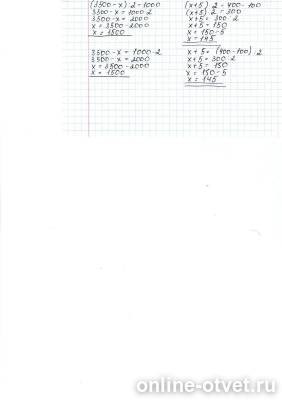 (3500-x):2=1000
3500-x=1000·2
3500-x=2000
x=3500-2000
x=1500
3500-x=1000·2
3500-x=2000
x=3500-2000
x=1500
(x+5)·2=400-100
(x+5)·2=300
x+5=300:2
x+5=150
x=150-5
x=145
x+5=(400-100):2
x+5=300:2
x+5=150
x=150-5
x=145
online-otvet.ru